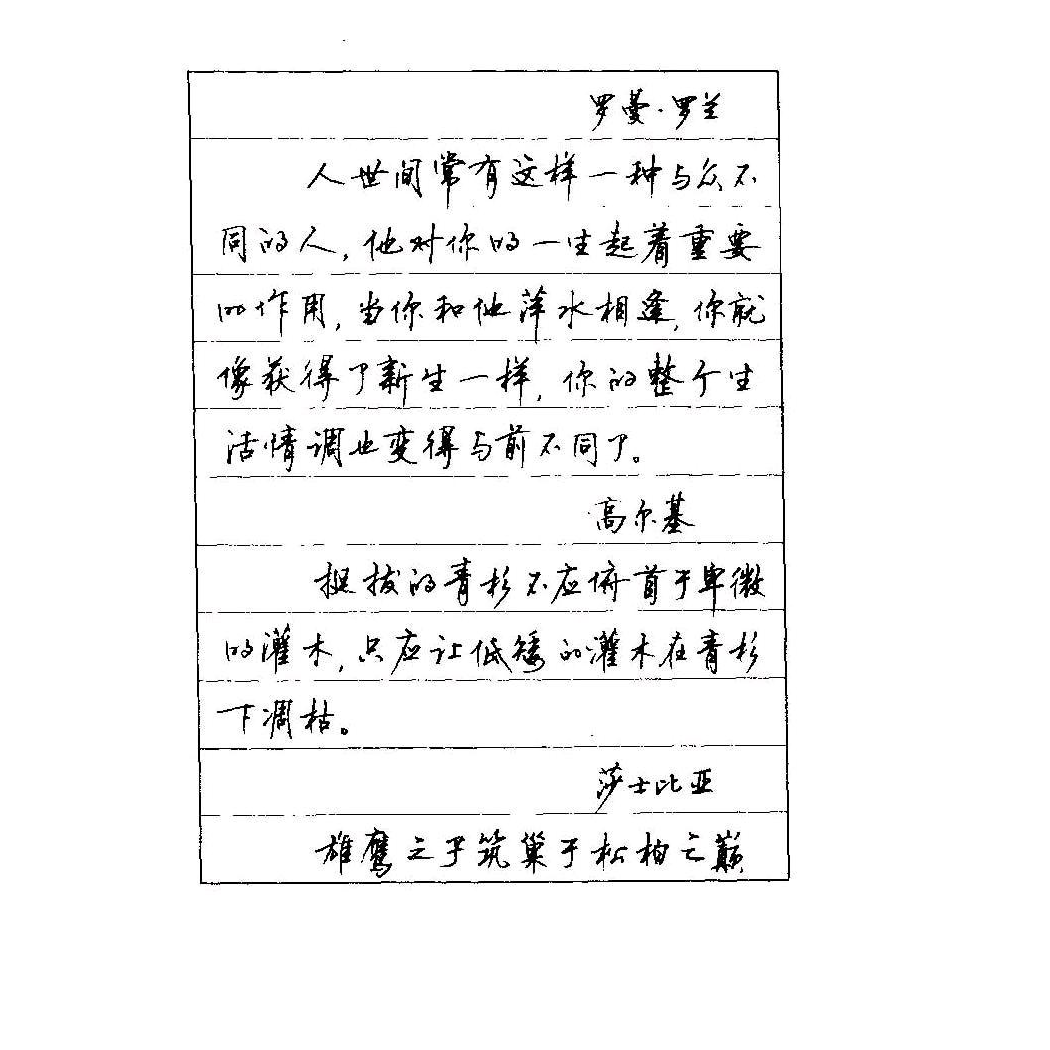 罗曼·罗兰
人世间常有这样一种与众不
同的人，他对你的一生起着重要
的作用，当你和他萍水相逢，你就
像获得了新生一样，你的整个生
活情调也变得与前不同了。
高尔基
挺拔的青杉不应俯首于卑微
的灌木，只应让低矮的灌木在青杉
下凋枯。
莎士比亚
雄鹰之子筑巢于松柏之巅